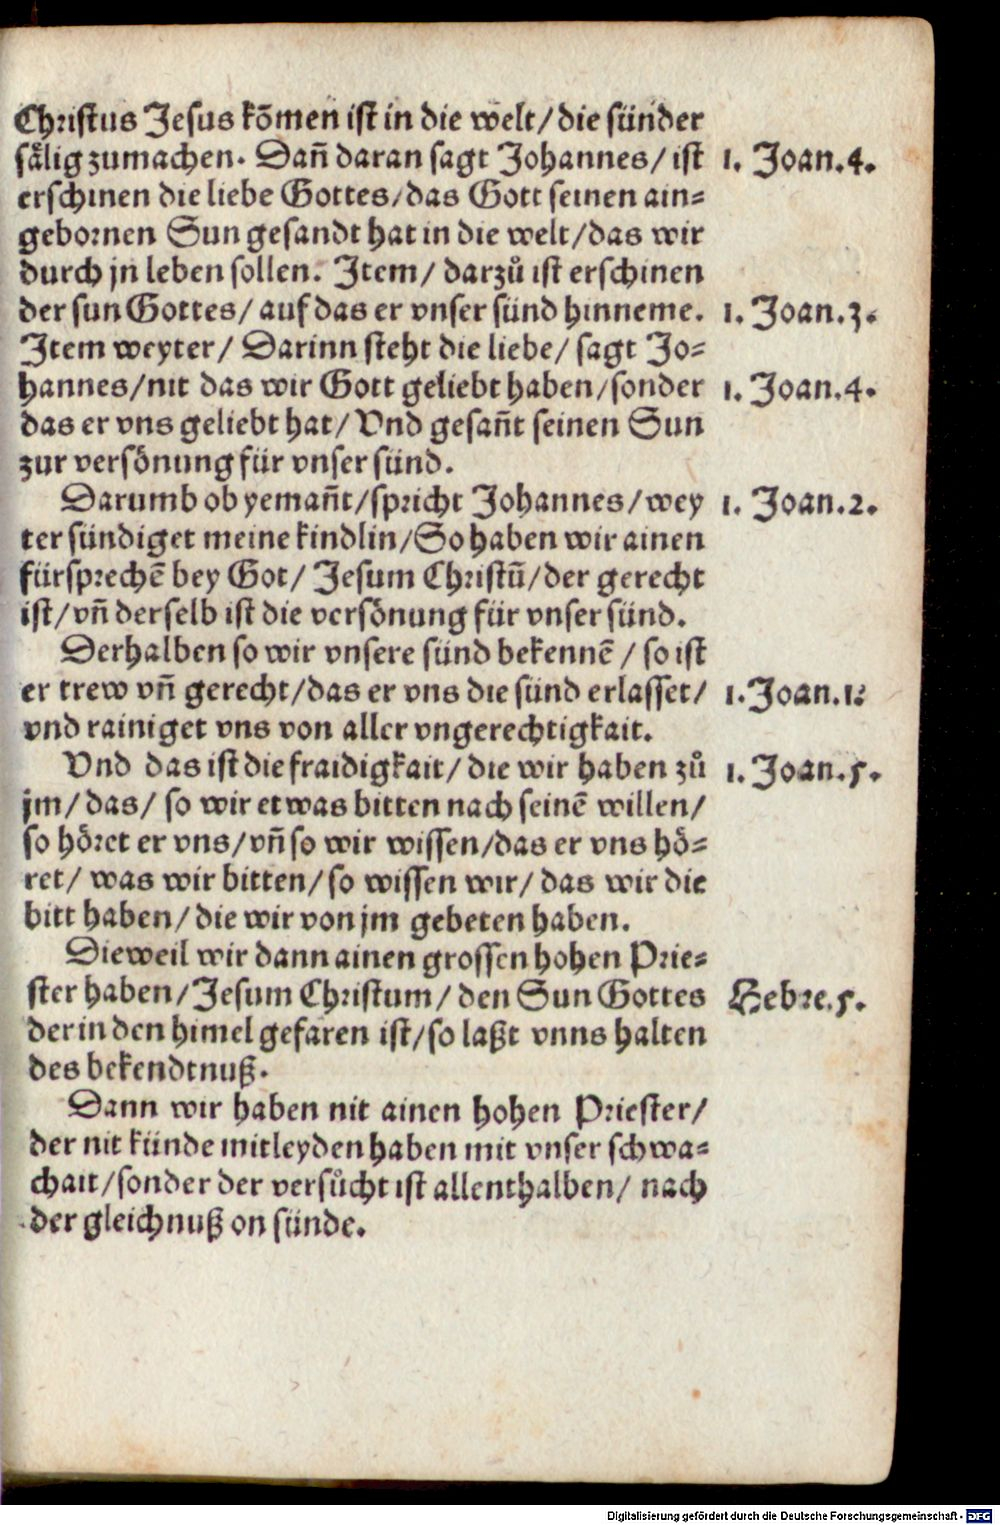 Christus Jesus kom̃en ist in die welt/die sünder
sälig zumachen. Dañ daran sagt Johannes/ist 1. Joan.4.
erschinen die liebe Gottes/das Gott seinen ain-
gebornen Sun gesandt hat in die welt/das wir
durch jn leben sollen. Item/ darzů ist erschinen
der sun Gottes/ auf das er vnser sünd hinneme. 1. Joan.3.
Item weyter/ Darinn steht die liebe/ sagt Jo-
hannes/nit das wir Gott geliebt haben/sonder 1. Joan.4.
das er vns geliebt hat/ Vnd gesañt seinen Sun
zur versönung für vnser sünd.
Darumb ob yemañt/spricht Johannes/wey 1. Joan.2.
ter sündiget meine kindlin/So haben wir ainen
fürsprechē bey Got/ Jesum Christū/der gerecht
ist/vñ derselb ist die versönung für vnser sünd.
Derhalben so wir vnsere sünd bekennē / so ist
er trew vñ gerecht/das er vns die sünd erlasset/ 1. Joan.1.
vnd rainiget vns von aller vngerechtigkait.
Vnd das ist die fraidigkait/ die wir haben zů 1. Joan.5.
jm/ das/ so wir etwas bitten nach seinē willen/
so höret er vns/vñ so wir wissen/das er vns hö-
ret/ was wir bitten/ so wissen wir/ das wir die
bitt haben/ die wir von jm gebeten haben.
Dieweil wir dann ainen grossen hohen Prie-
ster haben/Jesum Christum/ den Sun Gottes Hebre.5.
der in den himel gefaren ist/so laßt vnns halten
des bekendtnuß.
Dann wir haben nit ainen hohen Priester/
der nit künde mitleyden haben mit vnser schwa-
chait/sonder der versůcht ist allenthalben/ nach
der gleichnuß on sünde.
Digitalisierung gefördert durch die Deutsche Forschungsgemeinschaft - DFG